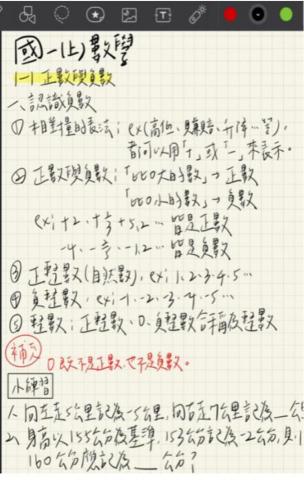 國一(上)數學
1-1 正數與負數
一、認識負數
① 相對量的表法：ex(高低、賺賠、升降…等)，
皆可以用「+」或「-」來表示。
② 正數與負數：「比0大的數」→ 正數
「比0小的數」→ 負數
ex：+2、+⅓、+5.2… 皆是正數
-1.2… 皆是負數
③ 正整數(自然數)，ex：1、2、3、4、5…
④ 負整數，ex：-1、-2、-3、-4、-5…
⑤ 整數：正整數、0、負整數合稱為整數
補充
0既不是正數，也不是負數。
小練習
1. 向左走5公里記為-5公里，向右走7公里記為__公
2. 身高以155公分為基準，153公分記為-2公分，則
160公分應記為__公分？